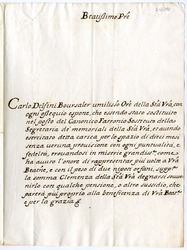 Beatissimo Prē
Carlo Delfini Boursaler umilissº Orē della Stà Vrā, con
ogni ossequio espone, che essendo stato sostituito
nel posto del Canonico Farronio Sostituto della
Segretaria de memoriali della Stà Vrā, et avendo
esercitato detta carica per lo spazio di dieci mesi
senza veruna provisione con ogni puntualità, e
fedeltà, trovandosi in miserie grandissº come
ha avuto l'onore di rappresentar più volte a Vrā
Beatne, e con il peso di due nipoti orfani, supp.ca
la somma Clemenza della Stà Vrā degnarsi sovve-
nirlo con qualche pensione, o altro sussidio, che
parerà più proprio alla beneficenza di Vrā Beatne
e per la grazia